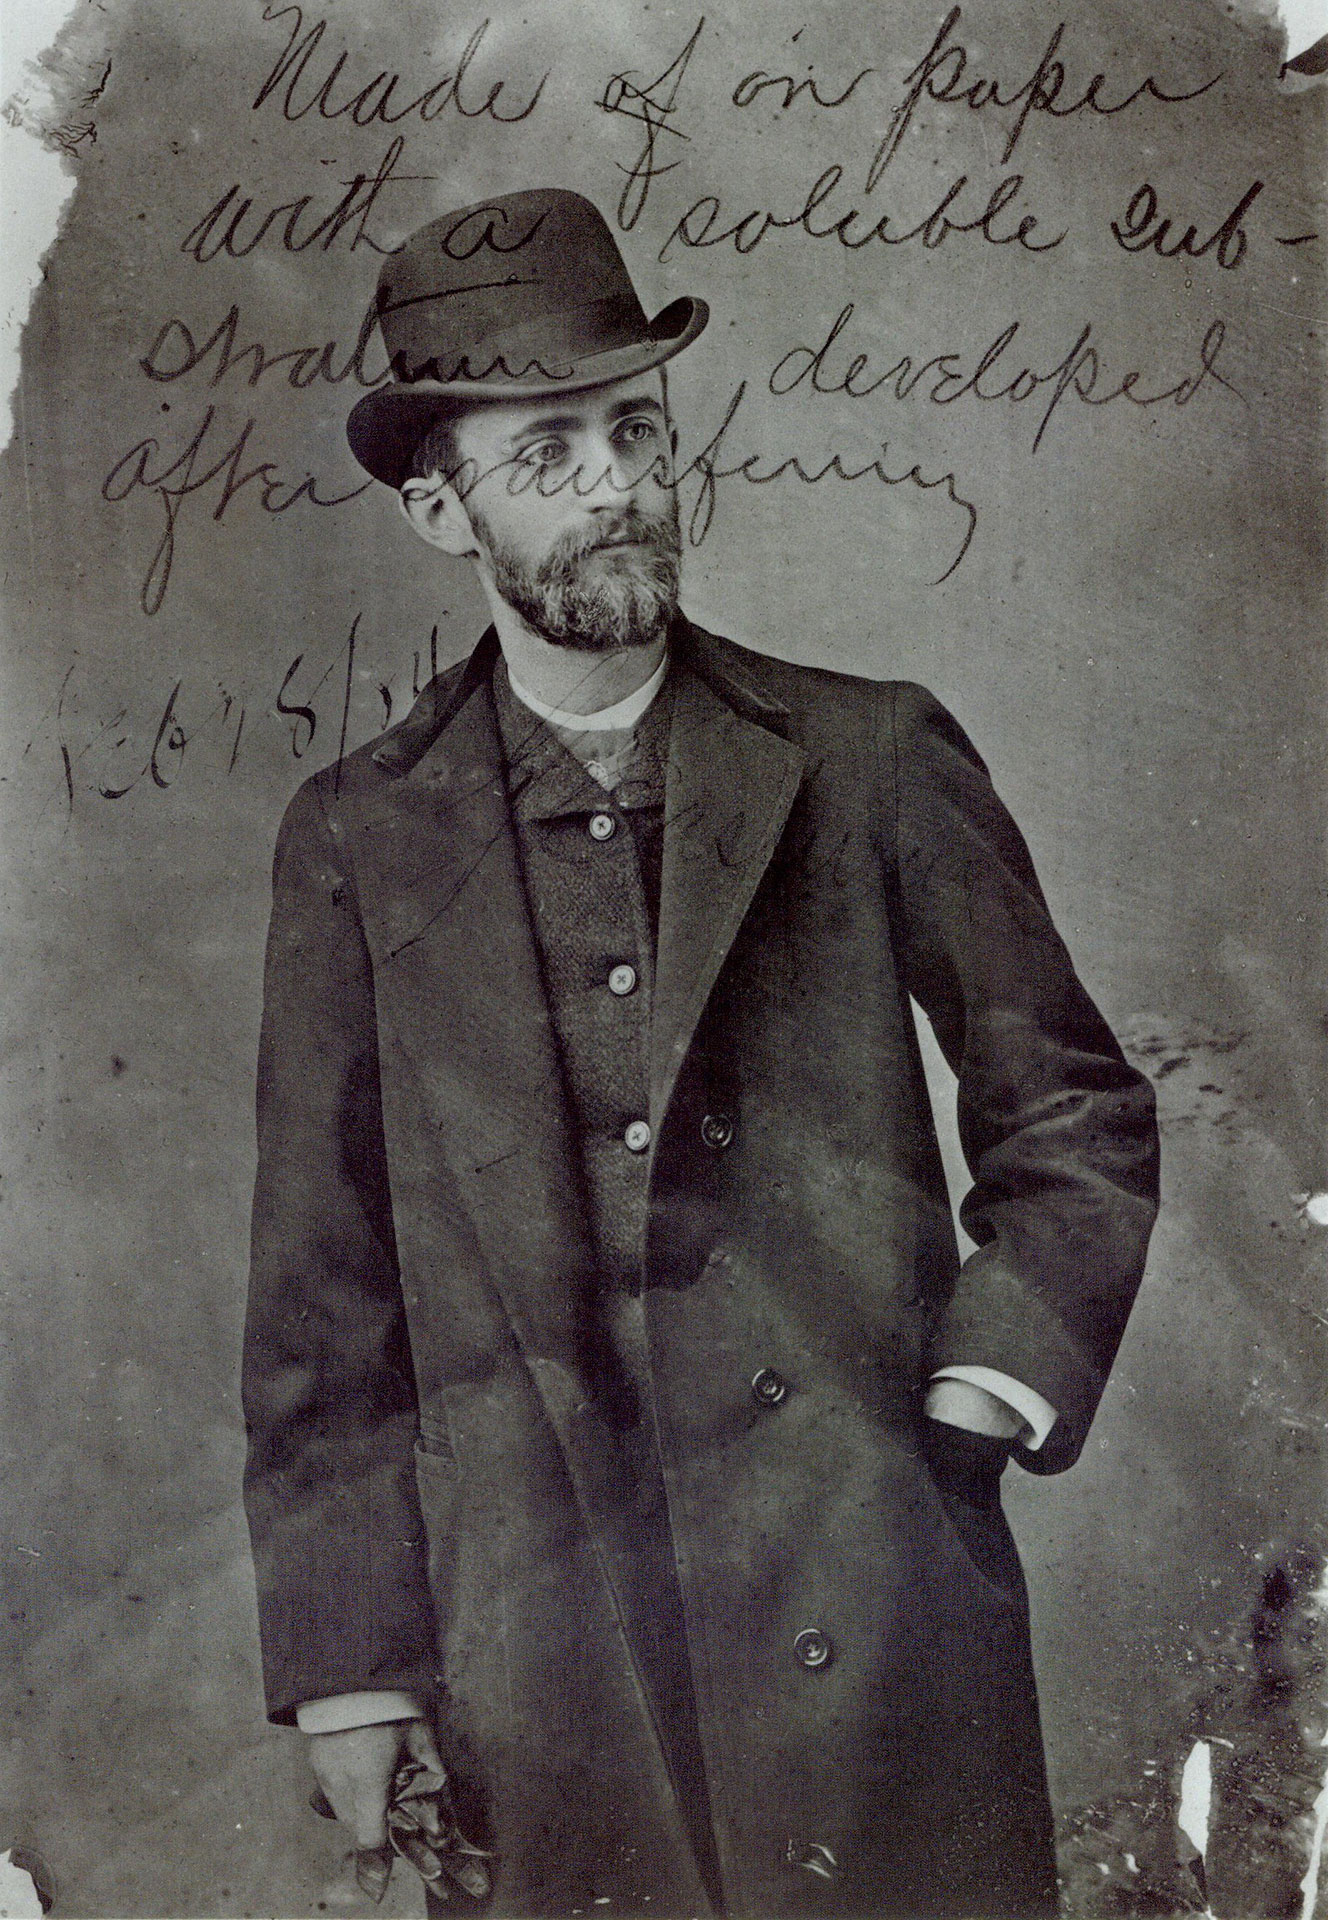 Made of on paper
with a soluble sub-
stratum developed
after transferring
Feb 18/84